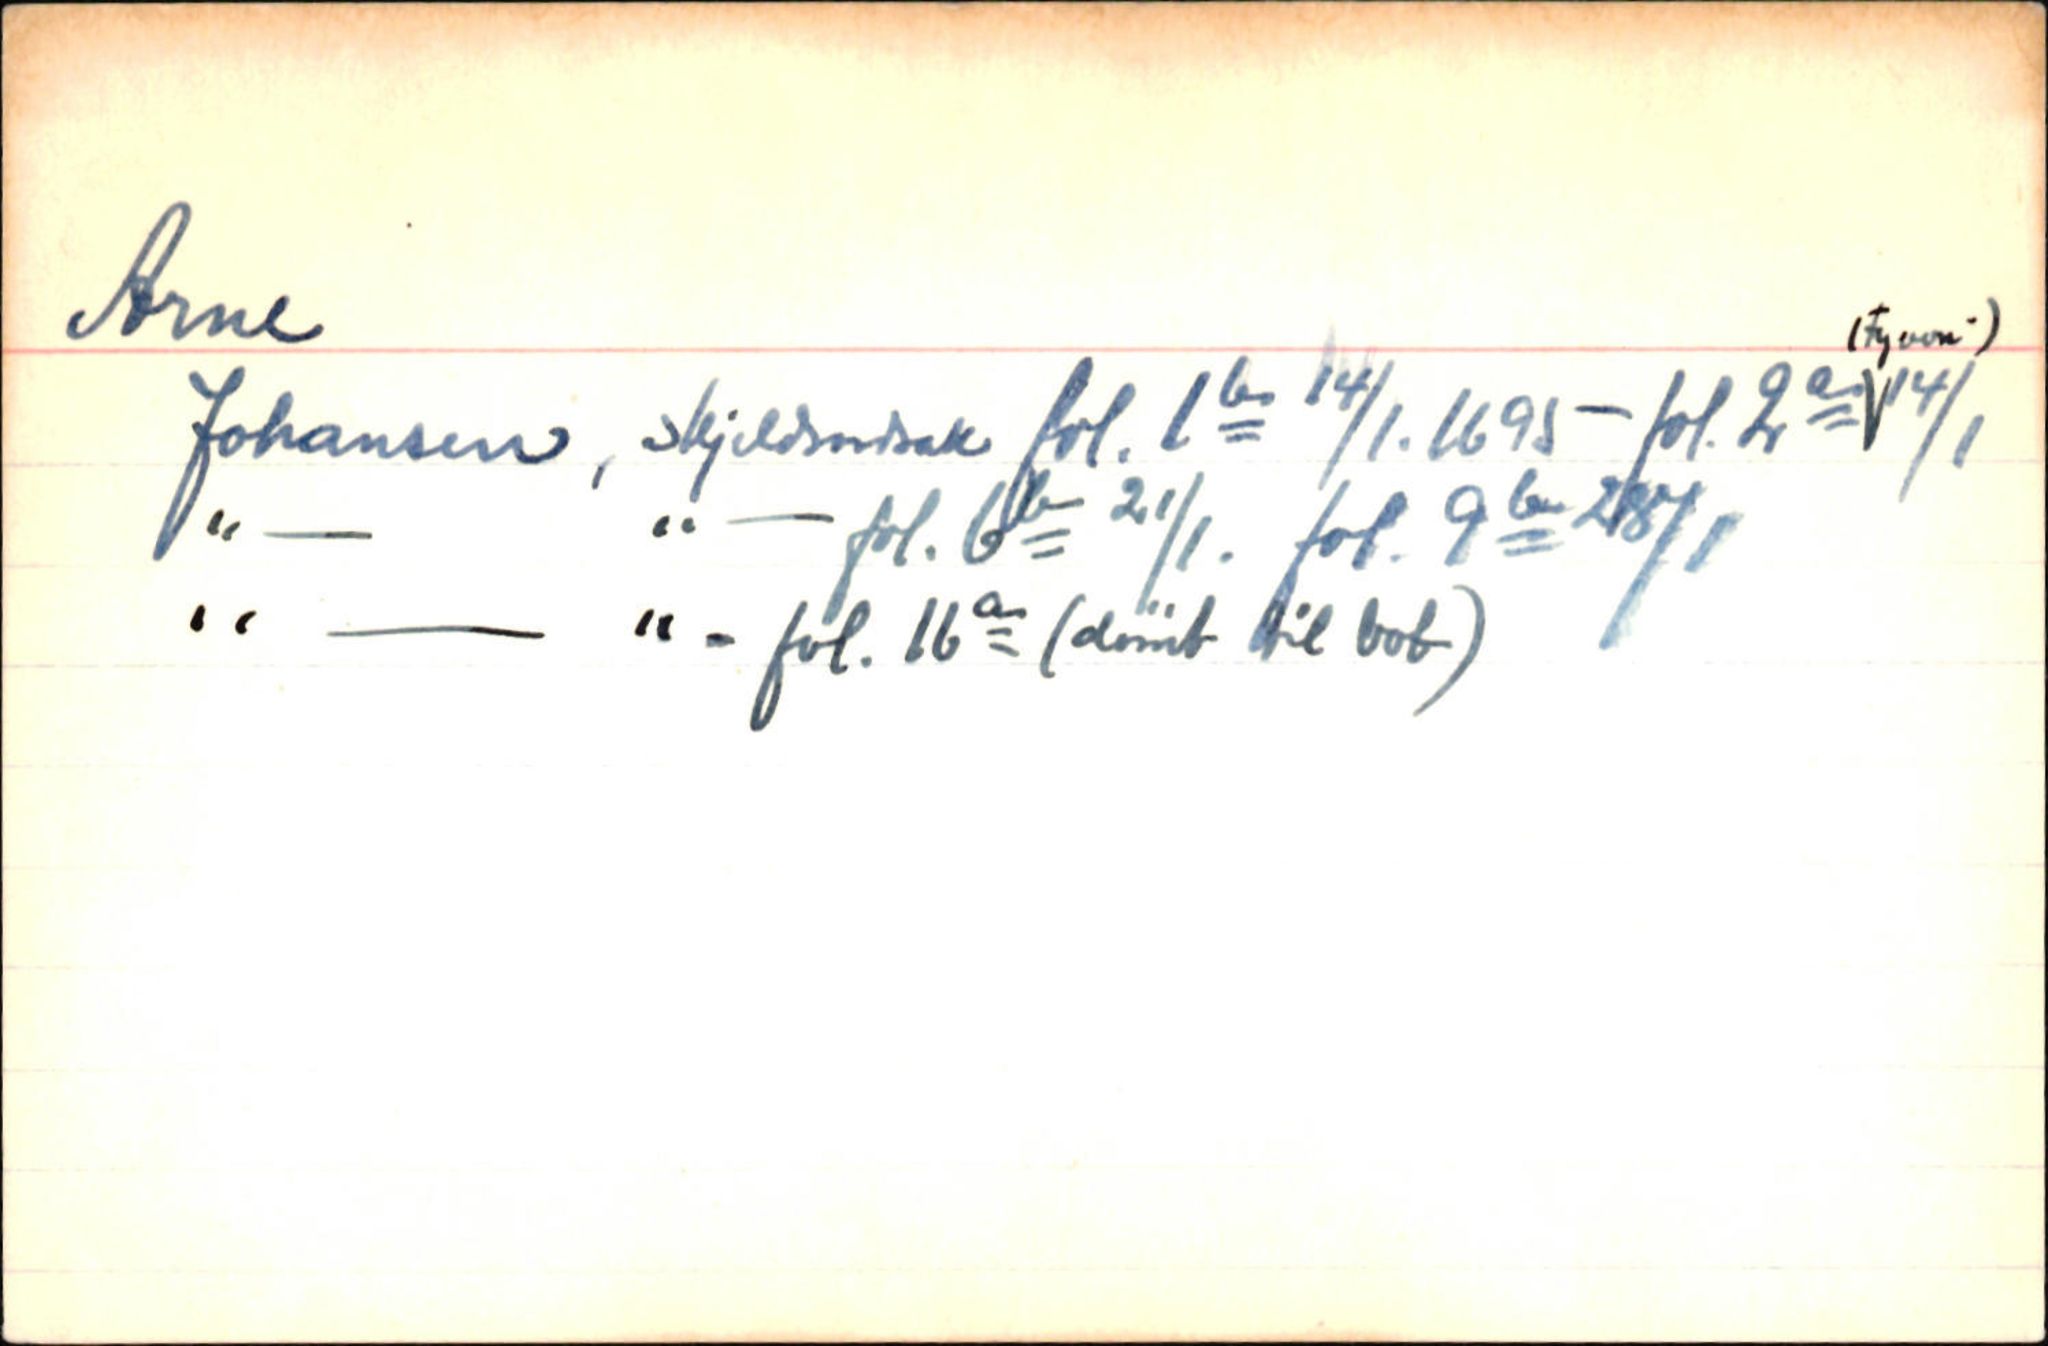 Arne
Johansen, skjeldsordsak fol. 1b 14/1. 1695 - fol. 2a (Tyveri) 14/1
"— "— fol. 6b 21/1. fol. 9b 28/1
"— " - fol. 16a (dömt til bot)